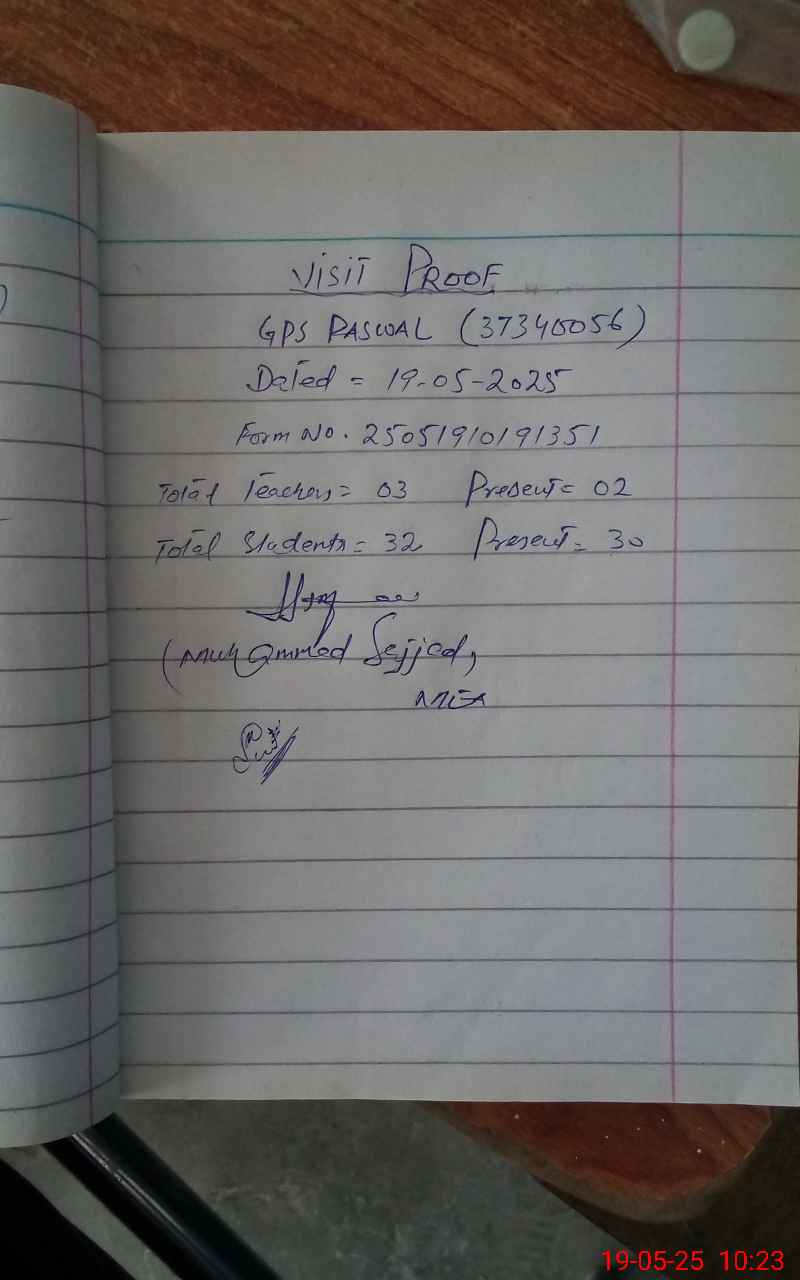 Visit Proof
GPS Paswal (37340056)
Dated = 19-05-2025
Form No. 25051910191351
Total Teachers = 03 Present = 02
Total Students = 32 Present = 30
(Muhammad Sajjad,
MEA
19-05-25 10:23